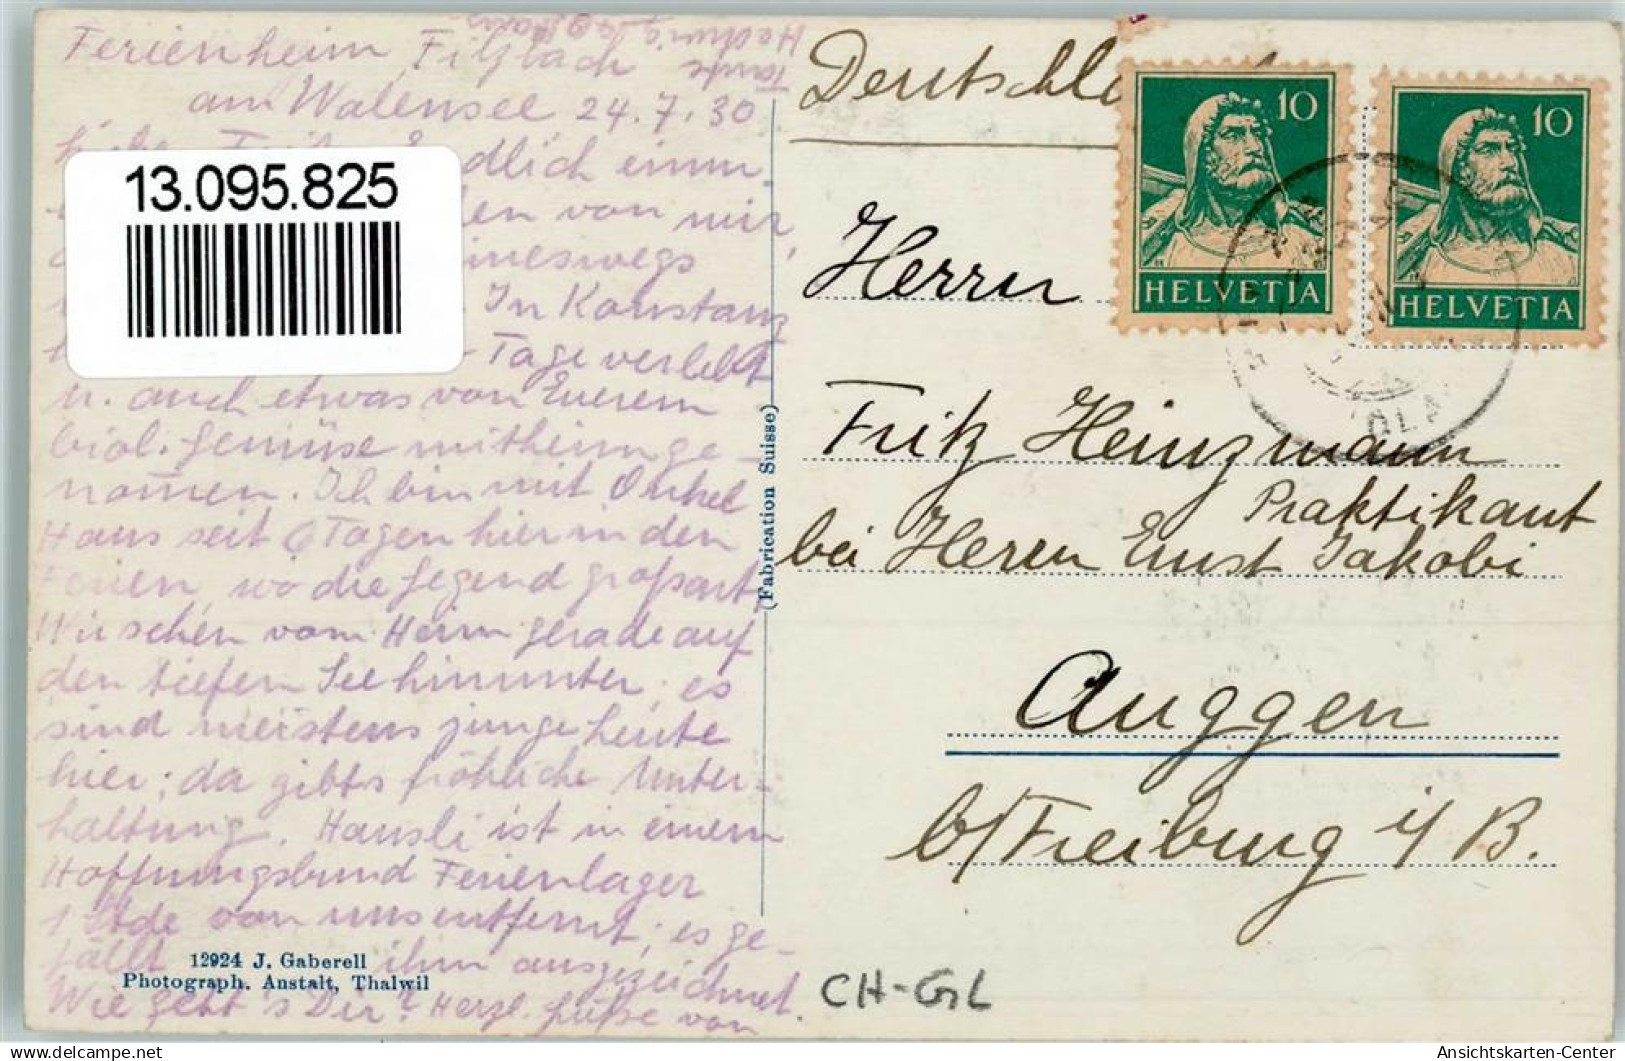 Ferienheim Filzbach
am Walensee 24.7.30
Endlich einm.
von mir,
keineswegs
In Konstanz
Tage verlebt
u. auch etwas von Eurem
biol. Gemüse mitheimge-
nomen. Ich bin mit Onkel
Hans seit 6 Tagen hier in den
Ferien, wo die Gegend großart.
Wir sehen vom Heim gerade auf
den tiefen See hinunter, es
sind meistens junge Leute
hier; da gibts fröhliche Unter-
haltung. Hansli ist in einem
Hoffnungsbund Ferienlager
1 Stde von uns entfernt; es ge-
fällt ihm ausgezeichnet.
Wie geht's Dir? Herzl. Grüße von
Tante
Hedwig
13.095.825
12924 J. Gaberell
Photograph. Anstalt, Thalwil
(Fabrication Suisse)
10
HELVETIA
10
HELVETIA
Herrn
Fritz Heinzmann
Praktikant
bei Herrn Ernst Jakobi
Auggen
b/Freiburg i/B.
CH-GL
oldthing.de
Ansichtskarten-Center